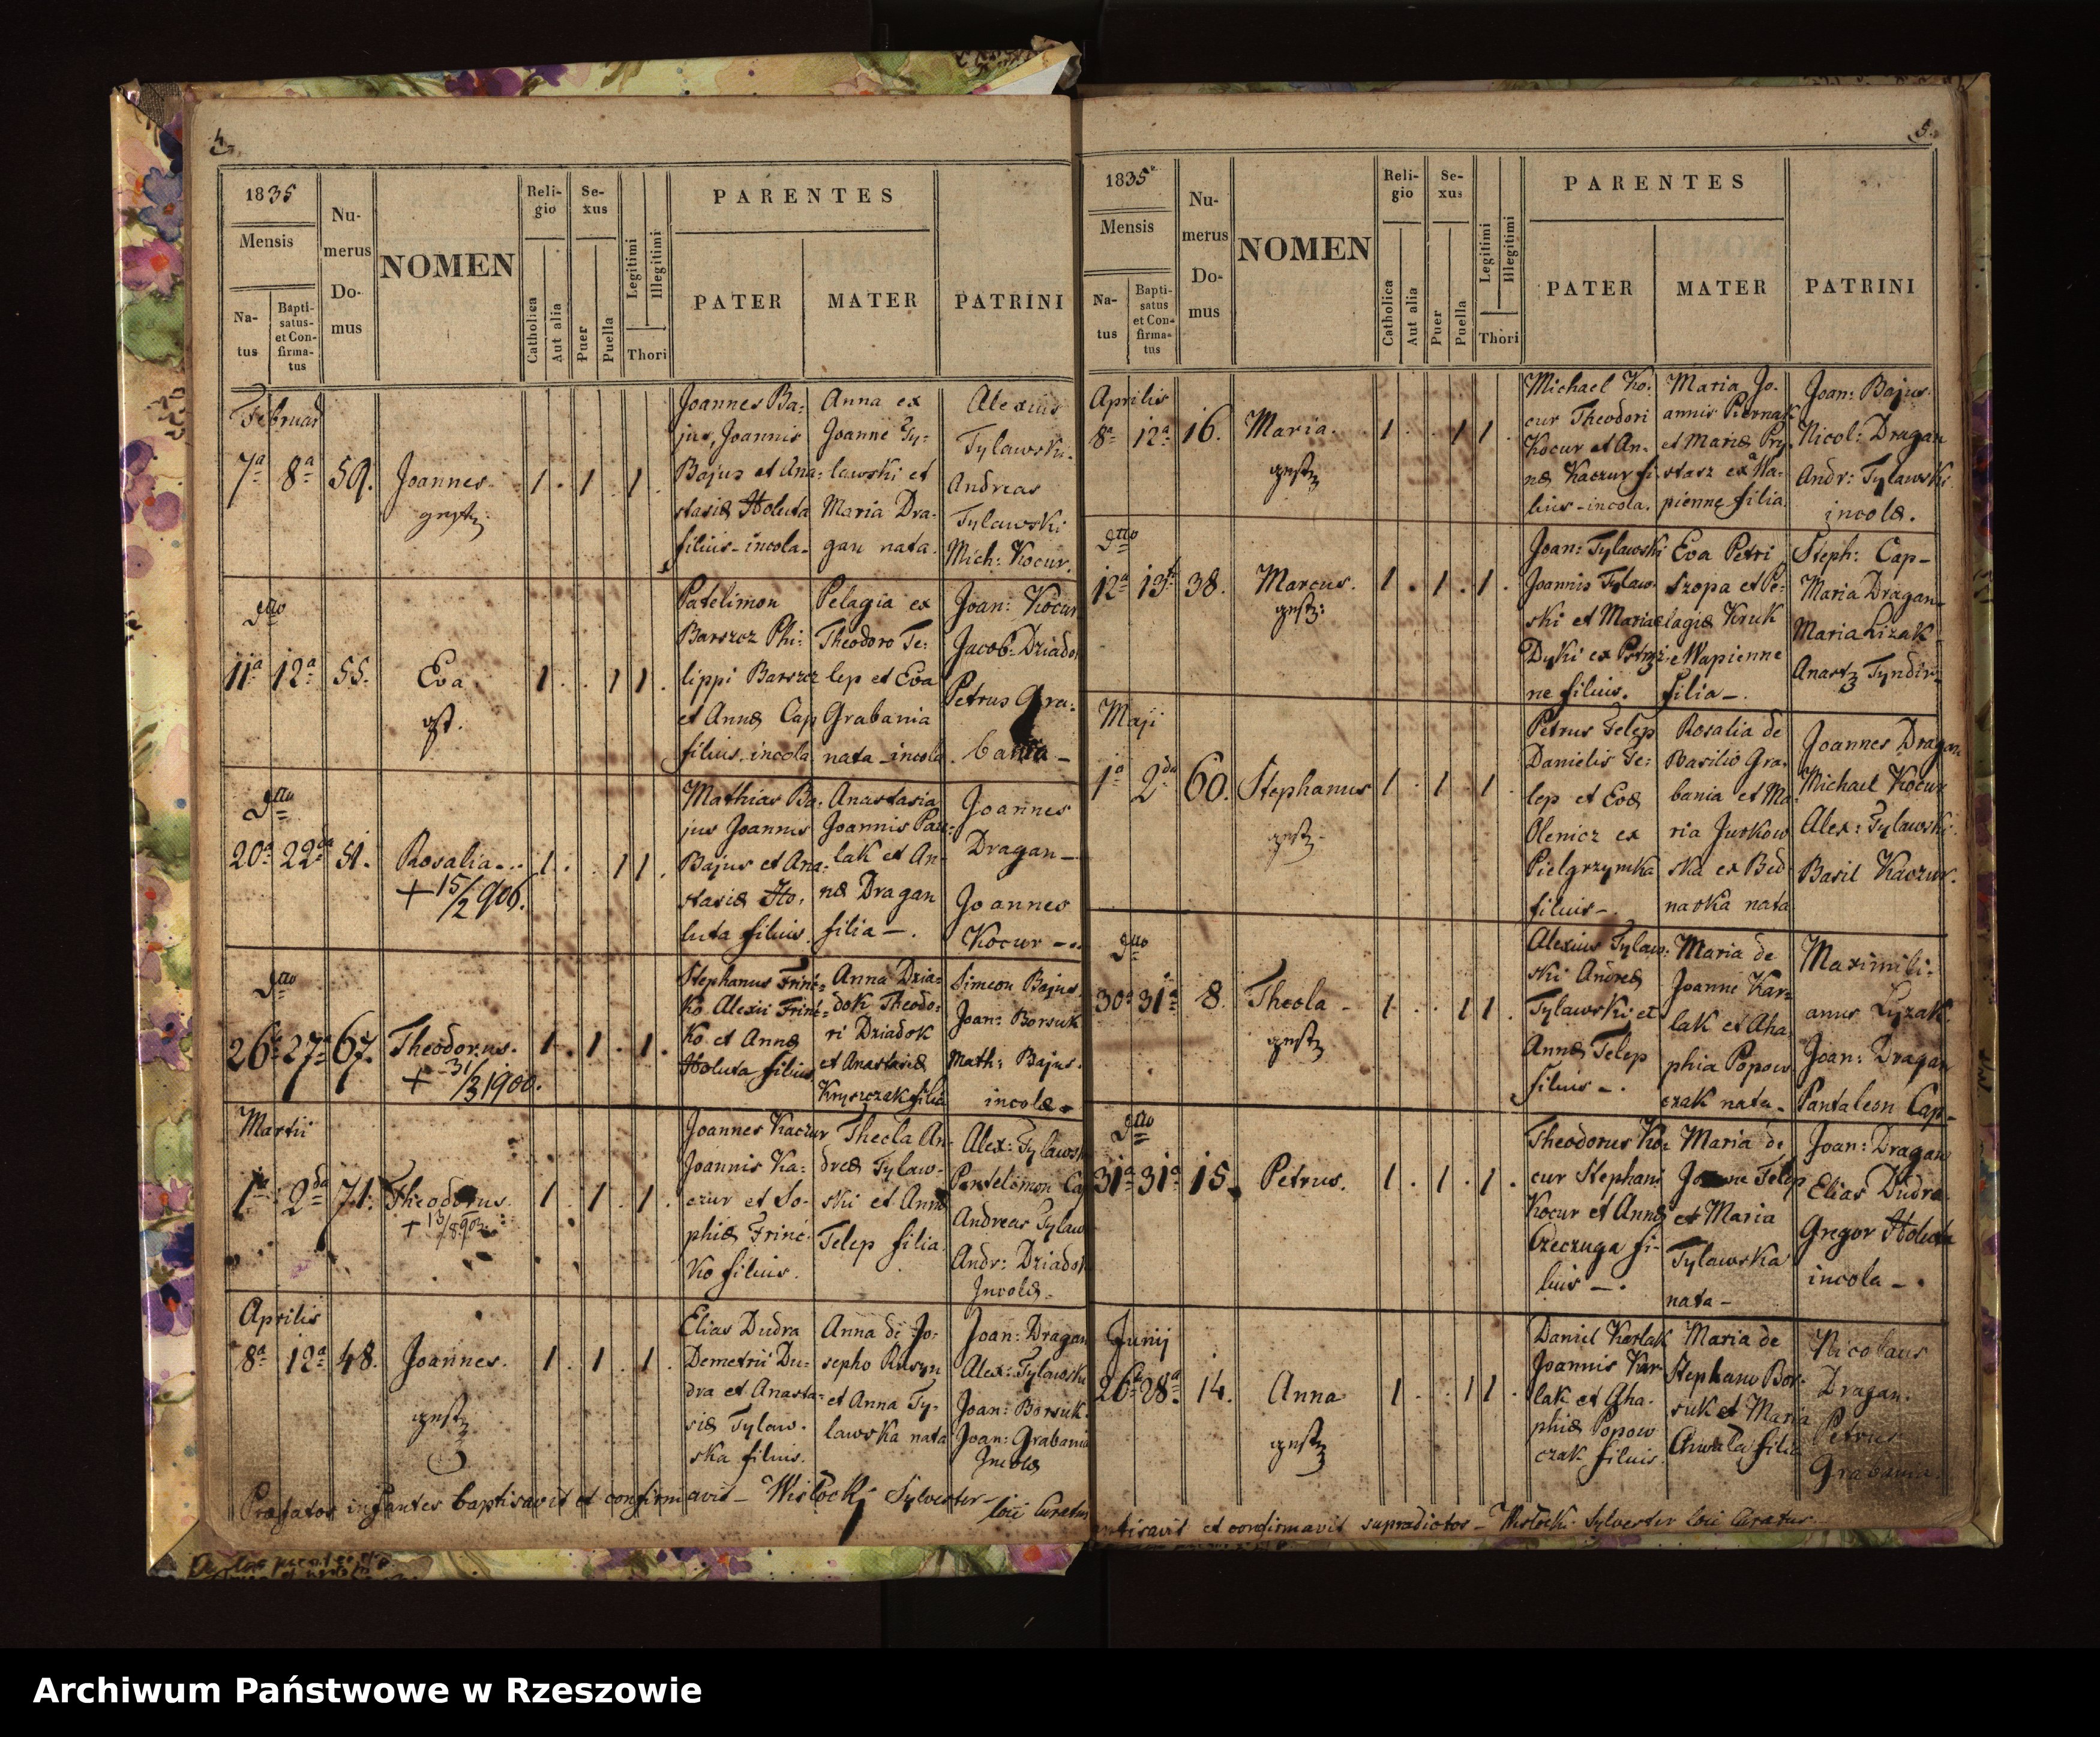 4.
1835
Mensis
Na-
tus
Bapti-
satus-
et Con-
firma-
tus
Nu-
merus
Do-
mus
NOMEN
Reli-
gio
Catholica
Aut alia
Se-
xus
Puer
Puella
Legitimi
Illegitimi
Thori
PARENTES
PATER
MATER
PATRINI
Februar
7a 8a 59. Joannes. 1 . 1 . 1 .
Joannes Ba:
jus, Joannis
Bajus et Ana:
stasiæ Holuta
filius - incola -
Anna ex
Joanne Ty-
lawski et
Maria Dra-
gan nata.
Alexius
Tylawski.
Andreas
Tylawski
Mich: Kocur.
dtto
11a 12a 55. Eva 1 . . 1 1 .
Patelimon
Barszcz Phi:
lippi Barszcz
et Annæ Cap
filius incola
Pelagia ex
Theodoro Te:
lep et Eva
Grabania
nata - incola
Joan: Kocur
Jacob: Dziadok
Petrus Gra:
bania -
dtto
20a 22da 51. Rosalia 1 . . 1 1 .
+ 15/2 906.
Mathias Ba:
jus Joannis
Bajus et Ana:
stasiæ Ho,
luta filius.
Anastasia
Joannis Paw:
lak et An-
næ Dragan
filia -.
Joannes
Dragan -
Joannes
Kocur -
dtto
26a 27a 67. Theodorus. 1 . 1 . 1 .
+ 31/3 1900.
Stephanus Frinc=
ko Alexii Frinc=
ko et Annæ
Holuta filius
Anna Dzia=
dok Theodo:
ri Dziadok
et Anastasiæ
Kryszczak filia
Simeon Bajus.
Joan: Borsuk
Math: Bajus.
incolæ
Martii
1a 2da 71. Theodorus. 1 . 1 . 1 .
+ 13/8 902
Joannes Kaczur
Joannis Ka-
czur et So-
phiæ Frinc-
ko filius.
Thecla An-
dreæ Tylaw-
ski et Annæ
Telep filia.
Alex: Tylawsk
Pantelimon Ca
Andreas Tylaw
Andr: Dziadok
Incolæ.
Aprilis
8a 12a 48. Joannes. 1 . 1 . 1 .
Elias Dudra
Demetrii Du-
dra et Anasta-
siæ Tylaw-
ska filius.
Anna de Jo-
sepho Rusyn
et Anna Ty-
lawska nata
Joan: Dragan
Alex: Tylawski
Joan: Borsuk.
Joan: Grabania
Incolæ
Præfatos infantes baptisavit et confirmavit - Wisłocki Sylvester - loci Curatus
5.
1835
Mensis
Na-
tus
Bapti-
satus
et Con-
firma-
tus
Nu-
merus
Do-
mus
NOMEN
Reli-
gio
Catholica
Aut alia
Se-
xus
Puer
Puella
Legitimi
Illegitimi
Thori
PARENTES
PATER
MATER
PATRINI
Aprilis
8a 12a 16. Maria. 1 . . 1 1 .
Michael Ko:
cur Theodori
Kocur et An-
næ Kaczur fi-
lius - incola.
Maria Jo-
annis Piernak
et Mariæ Pry-
stasz ex Wa-
pienne filia.
Joan: Bajus.
Nicol: Dragan
Andr: Tylawski.
incolæ.
dtto
12a 13a 38. Marcus. 1 . 1 . 1 .
Joan: Tylawski
Joannis Tylaw-
ski et Mariæ
Dyki ex
ne filius.
Eva Petri
Szopa et Pe-
lagiæ Kruk
e Wapienne
filia -.
Steph: Cap -
Maria Dragan-
Maria Lizak
Maji
1a 2da 60. Stephanus 1 . 1 . 1
Petrus Telep
Danielis Te:
lep et Evæ
Olenicz ex
Pielgrzymka
filius -.
Rosalia de
Basilio Gra-
bania et Ma-
ria Jurkow
ska ex Bed
narka nata
Joannes Dragan
Michael Kocur
Alex: Tylawski.
Basil Kaczur.
dtto
30a 31a 8. Thecla - 1 . . 1 1 .
Alexius Tylaw:
ski Andreæ
Tylawski et
Annæ Telep
filius -.
Maria de
Joanne Kar=
lak et Aha-
phia Popow
czak nata -
Maximili-
anus Lyzak.
Joan: Dragan
Pantaleon Cap -
dtto
31a 31a 15. Petrus. 1 . 1 . 1 .
Theodorus Ko:
cur Stephani
Kocur et Annæ
Czeczuga fi-
lius -.
Maria de
Joanne Telep
et Maria
Tylawska
nata -
Joan: Dragan
Elias Dudra.
Gregor Holuta
incola -.
Junij
26a 28a 14. Anna 1 . . 1 1 .
Daniel Karlak
Joannis Kar-
lak et Aha-
phiæ Popow
czak filius.
Maria de
Stephano Bor-
suk et Maria
Chwala filia
Nicolaus
Dragan.
Petrus
Grabania.
et confirmavit supradictos - Wisłocki Sylvester loci Curatus
Archiwum Państwowe w Rzeszowie